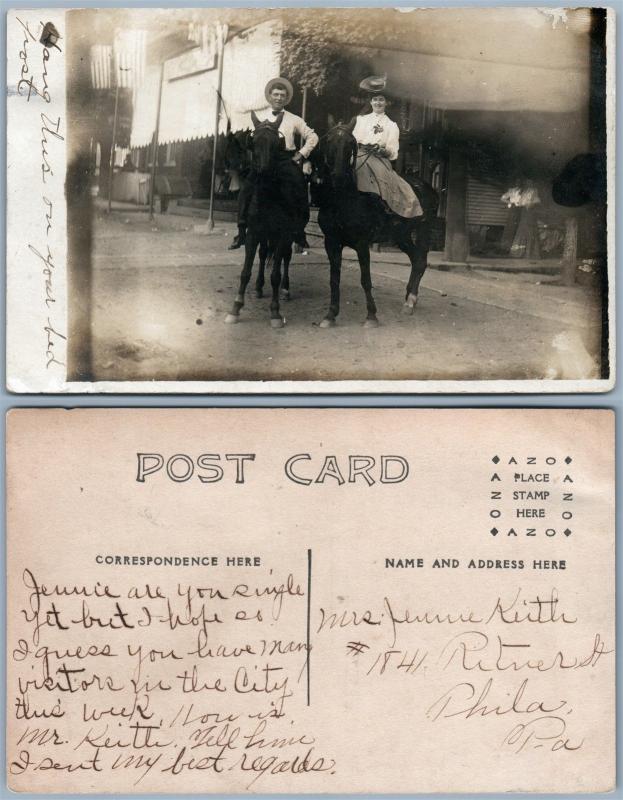 Hang this on your bed
Post
POST CARD
AZO
A PLACE A
Z STAMP Z
O HERE O
AZO
CORRESPONDENCE HERE
NAME AND ADDRESS HERE
Jennie are you single
yet but I hope so.
I guess you have many
visitors in the City
this week. How is
Mr. Keith. Tell him
I sent my best regards.
Mrs. Jennie Keith
# 1841. Ritner St
Phila.
Pa